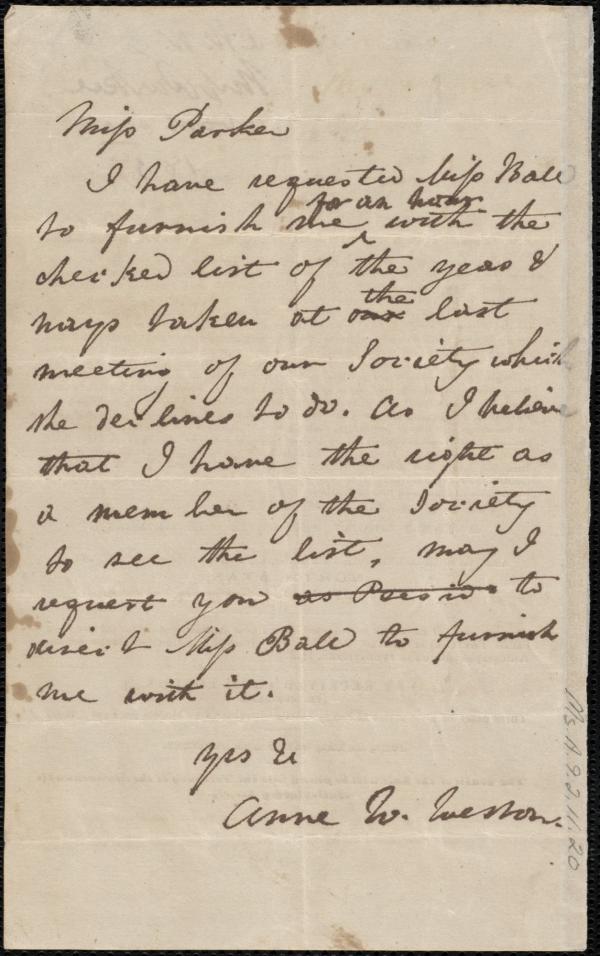 Miss Parker
I have requested Miss Ball
for an hour
to furnish me with the
checked list of the yeas &
the
nays taken at our last
meeting of our Society which
she declines to do. As I believe
that I have the right as
a member of the Society
to see the list, may I
request you as Presid to
direct Miss Ball to furnish
me with it.
yrs &c
Anne W. Weston.
Ms. A. 9.2.11.20